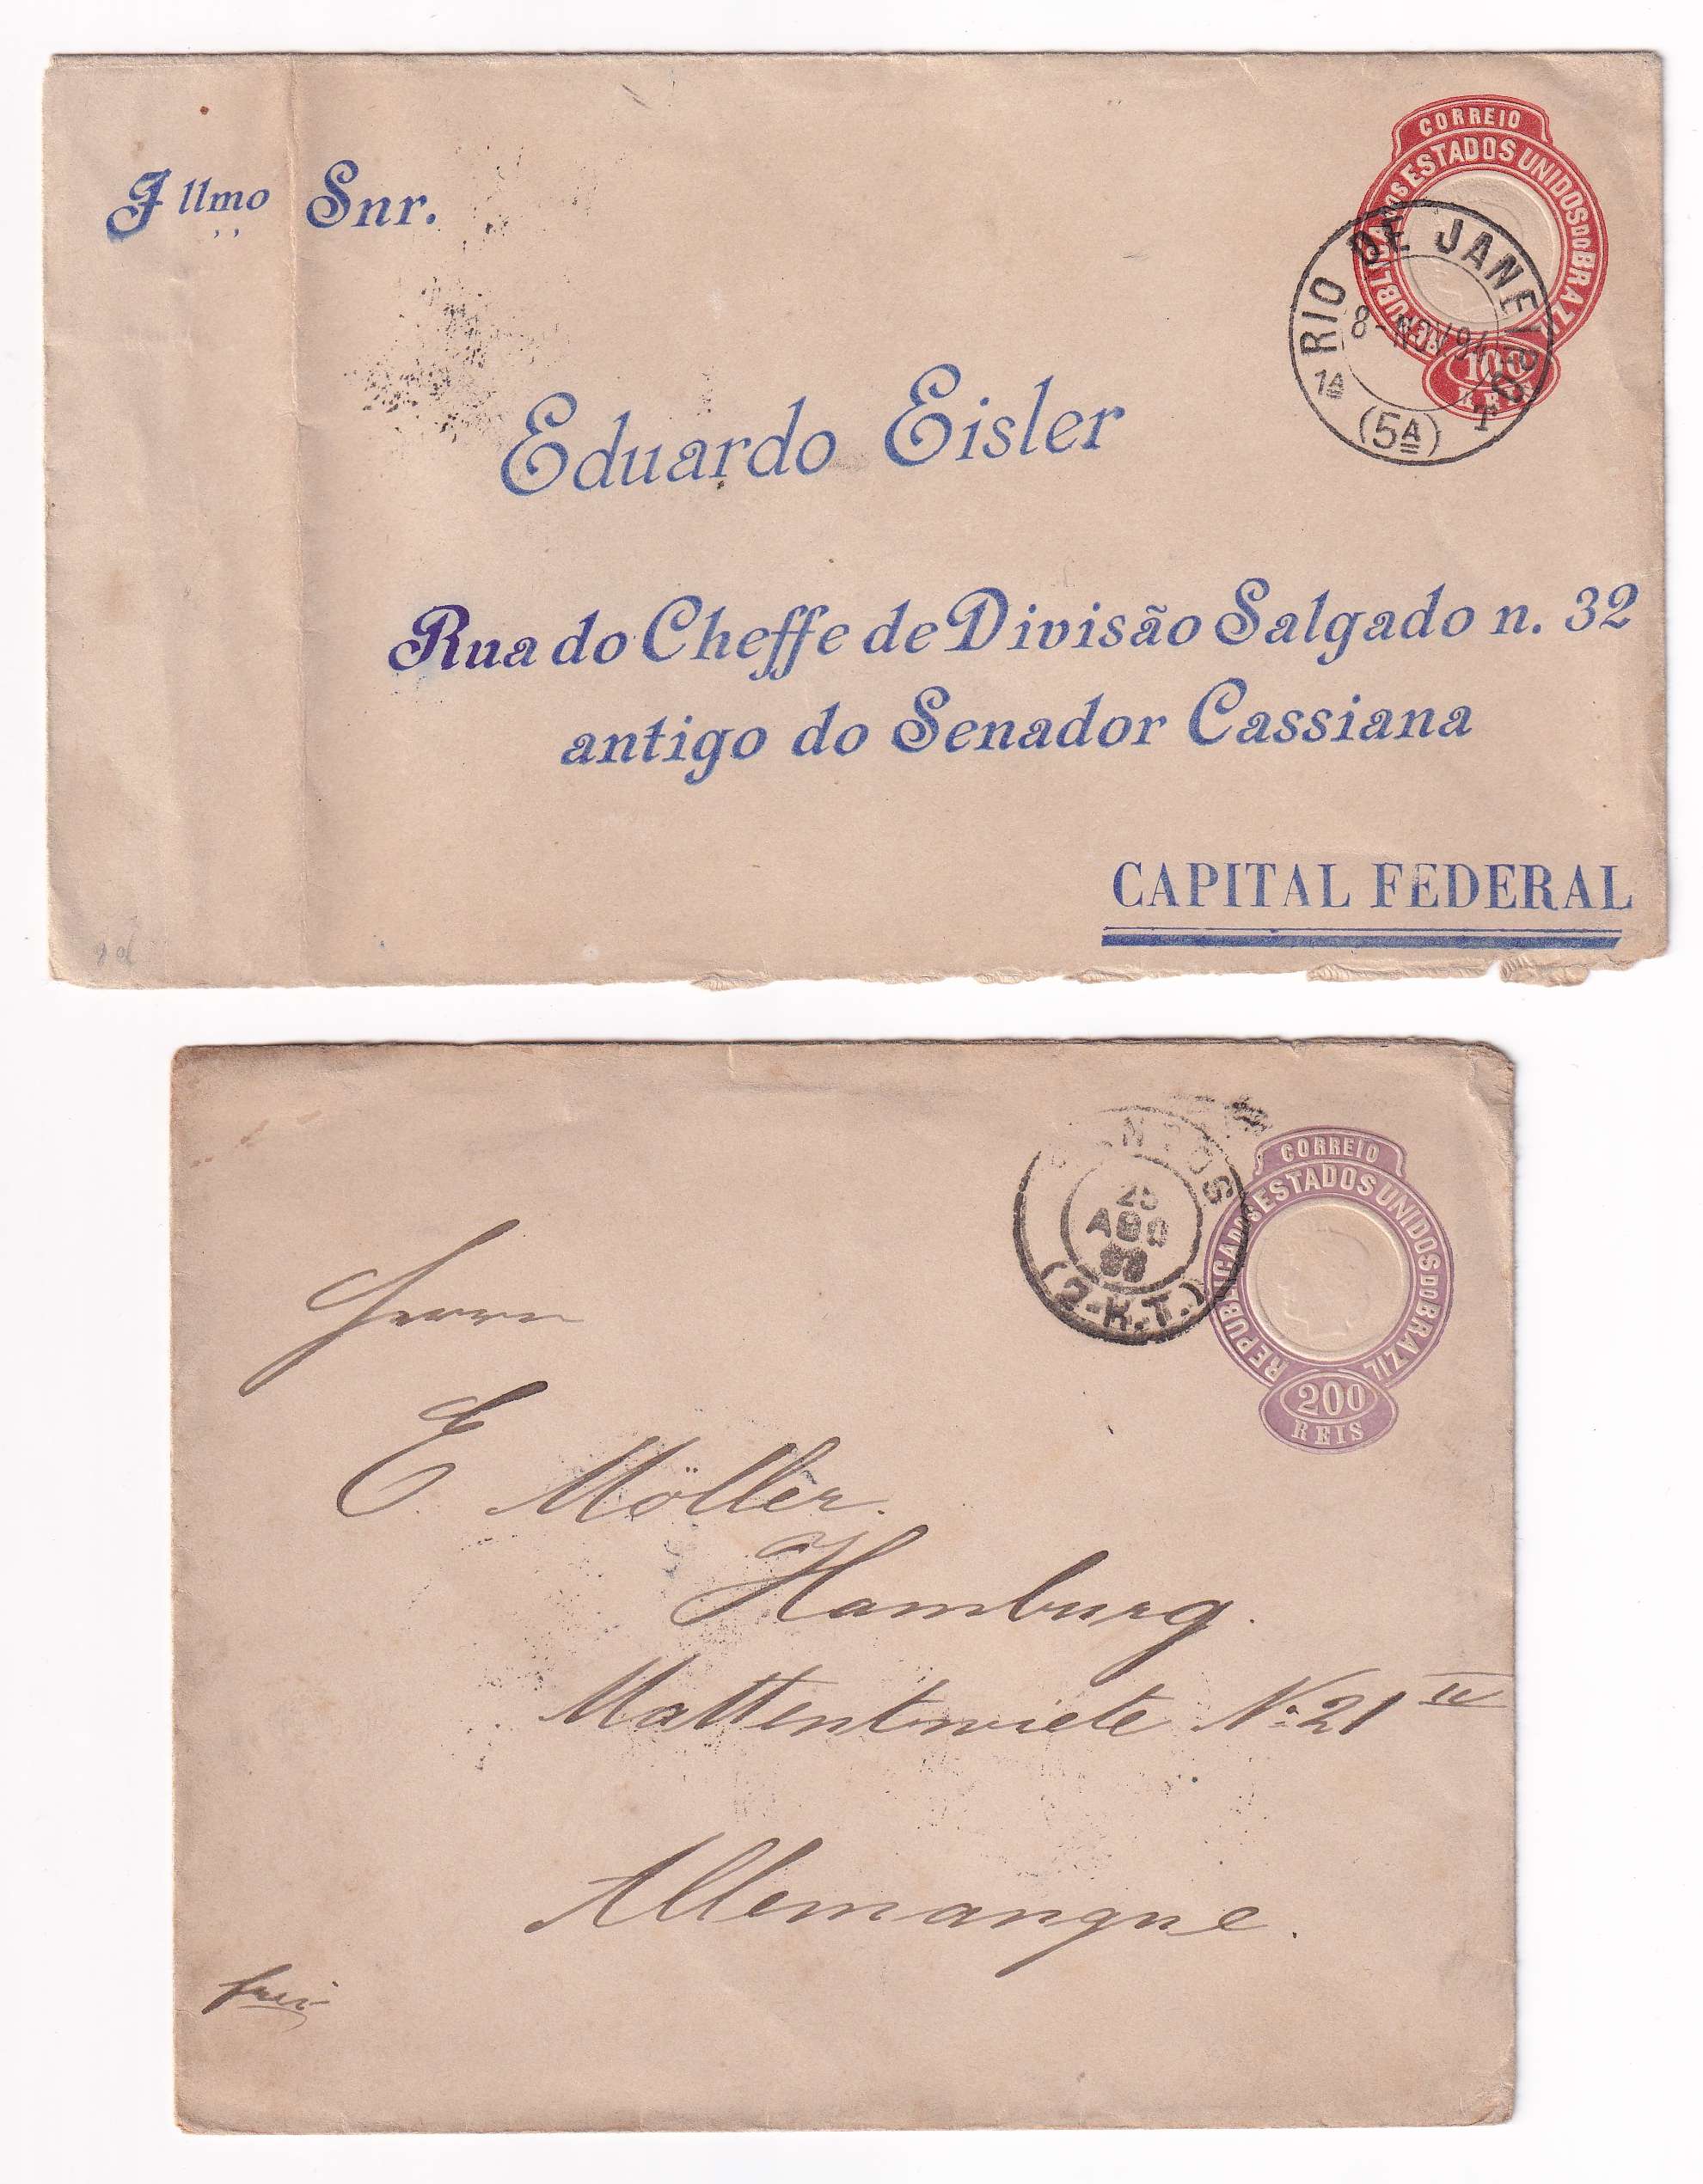 CORREIO
REPUBLICA DOS ESTADOS UNIDOS DO BRAZIL
100
REIS
RIO DE JANEIRO
8-NOV94
1ª (5ª) T
Illmo Snr.
Eduardo Eisler
Rua do Cheffe de Divisão Salgado n. 32
antigo do Senador Cassiana
CAPITAL FEDERAL
CORREIO
REPUBLICA DOS ESTADOS UNIDOS DO BRAZIL
200
REIS
SANTOS
AGO
Herrn
E. Möller.
Hamburg.
Mattentwiete No 21 IV
Allemangne.
frei